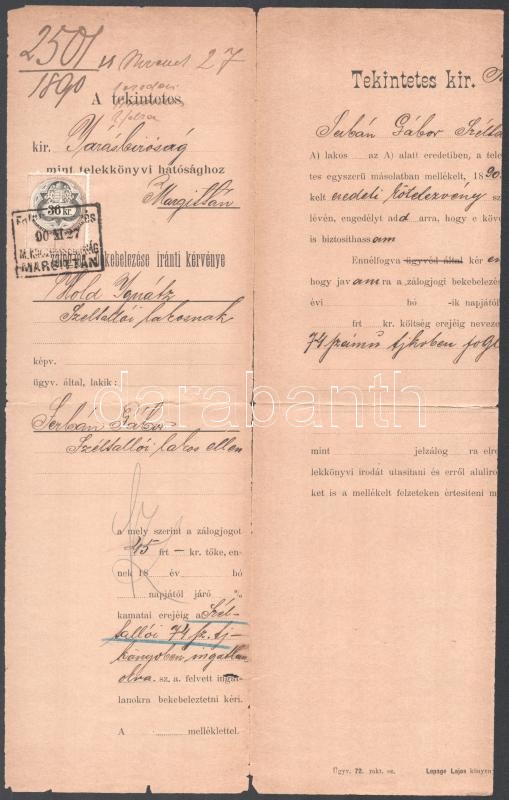 2501
1890
November 27
A tekintetes
kir. Járásbiróság
mint telekkönyvi hatósághoz
Margittán
36 kr.
90 XI 27
MARGITTÁN
bekebelezése iránti kérvénye
Hold Ignátz
Széltallói lakosnak
képv.
ügyv. által, lakik:
Serbán Gábor
Széltallói lakos ellen
a mely szerint a zálogjogot
45 frt — kr. tőke, en-
nek 18 év hó
napjától járó %
kamatai erejéig a Szél-
tallói 74 sz. tj-
könyvben ingatlan
olva. sz. a. felvett ingat-
lanokra bekebeleztetni kéri.
A melléklettel.
Tekintetes kir.
Serbán Gábor Szélta
A) lakos az A) alatt eredetiben, a tele
tes egyszerű másolatban mellékelt, 1890
kelt eredeti kötelezvény sz
lévén, engedélyt add arra, hogy e köve
is biztosithassam
Ennélfogva ügyvéd által kér em
hogy javamra a zálogjogi bekebelezés
évi hó -ik napjától
frt kr. költség erejéig neveze
74 számú tjkvben fogl
mint jelzálog ra elre
lekkönyvi irodát utasitani és erről aluliro
ket is a mellékelt felzeteken értesiteni m
Ügyv. 72. rakt. sz. Lepage Lajos könyv
darabanth